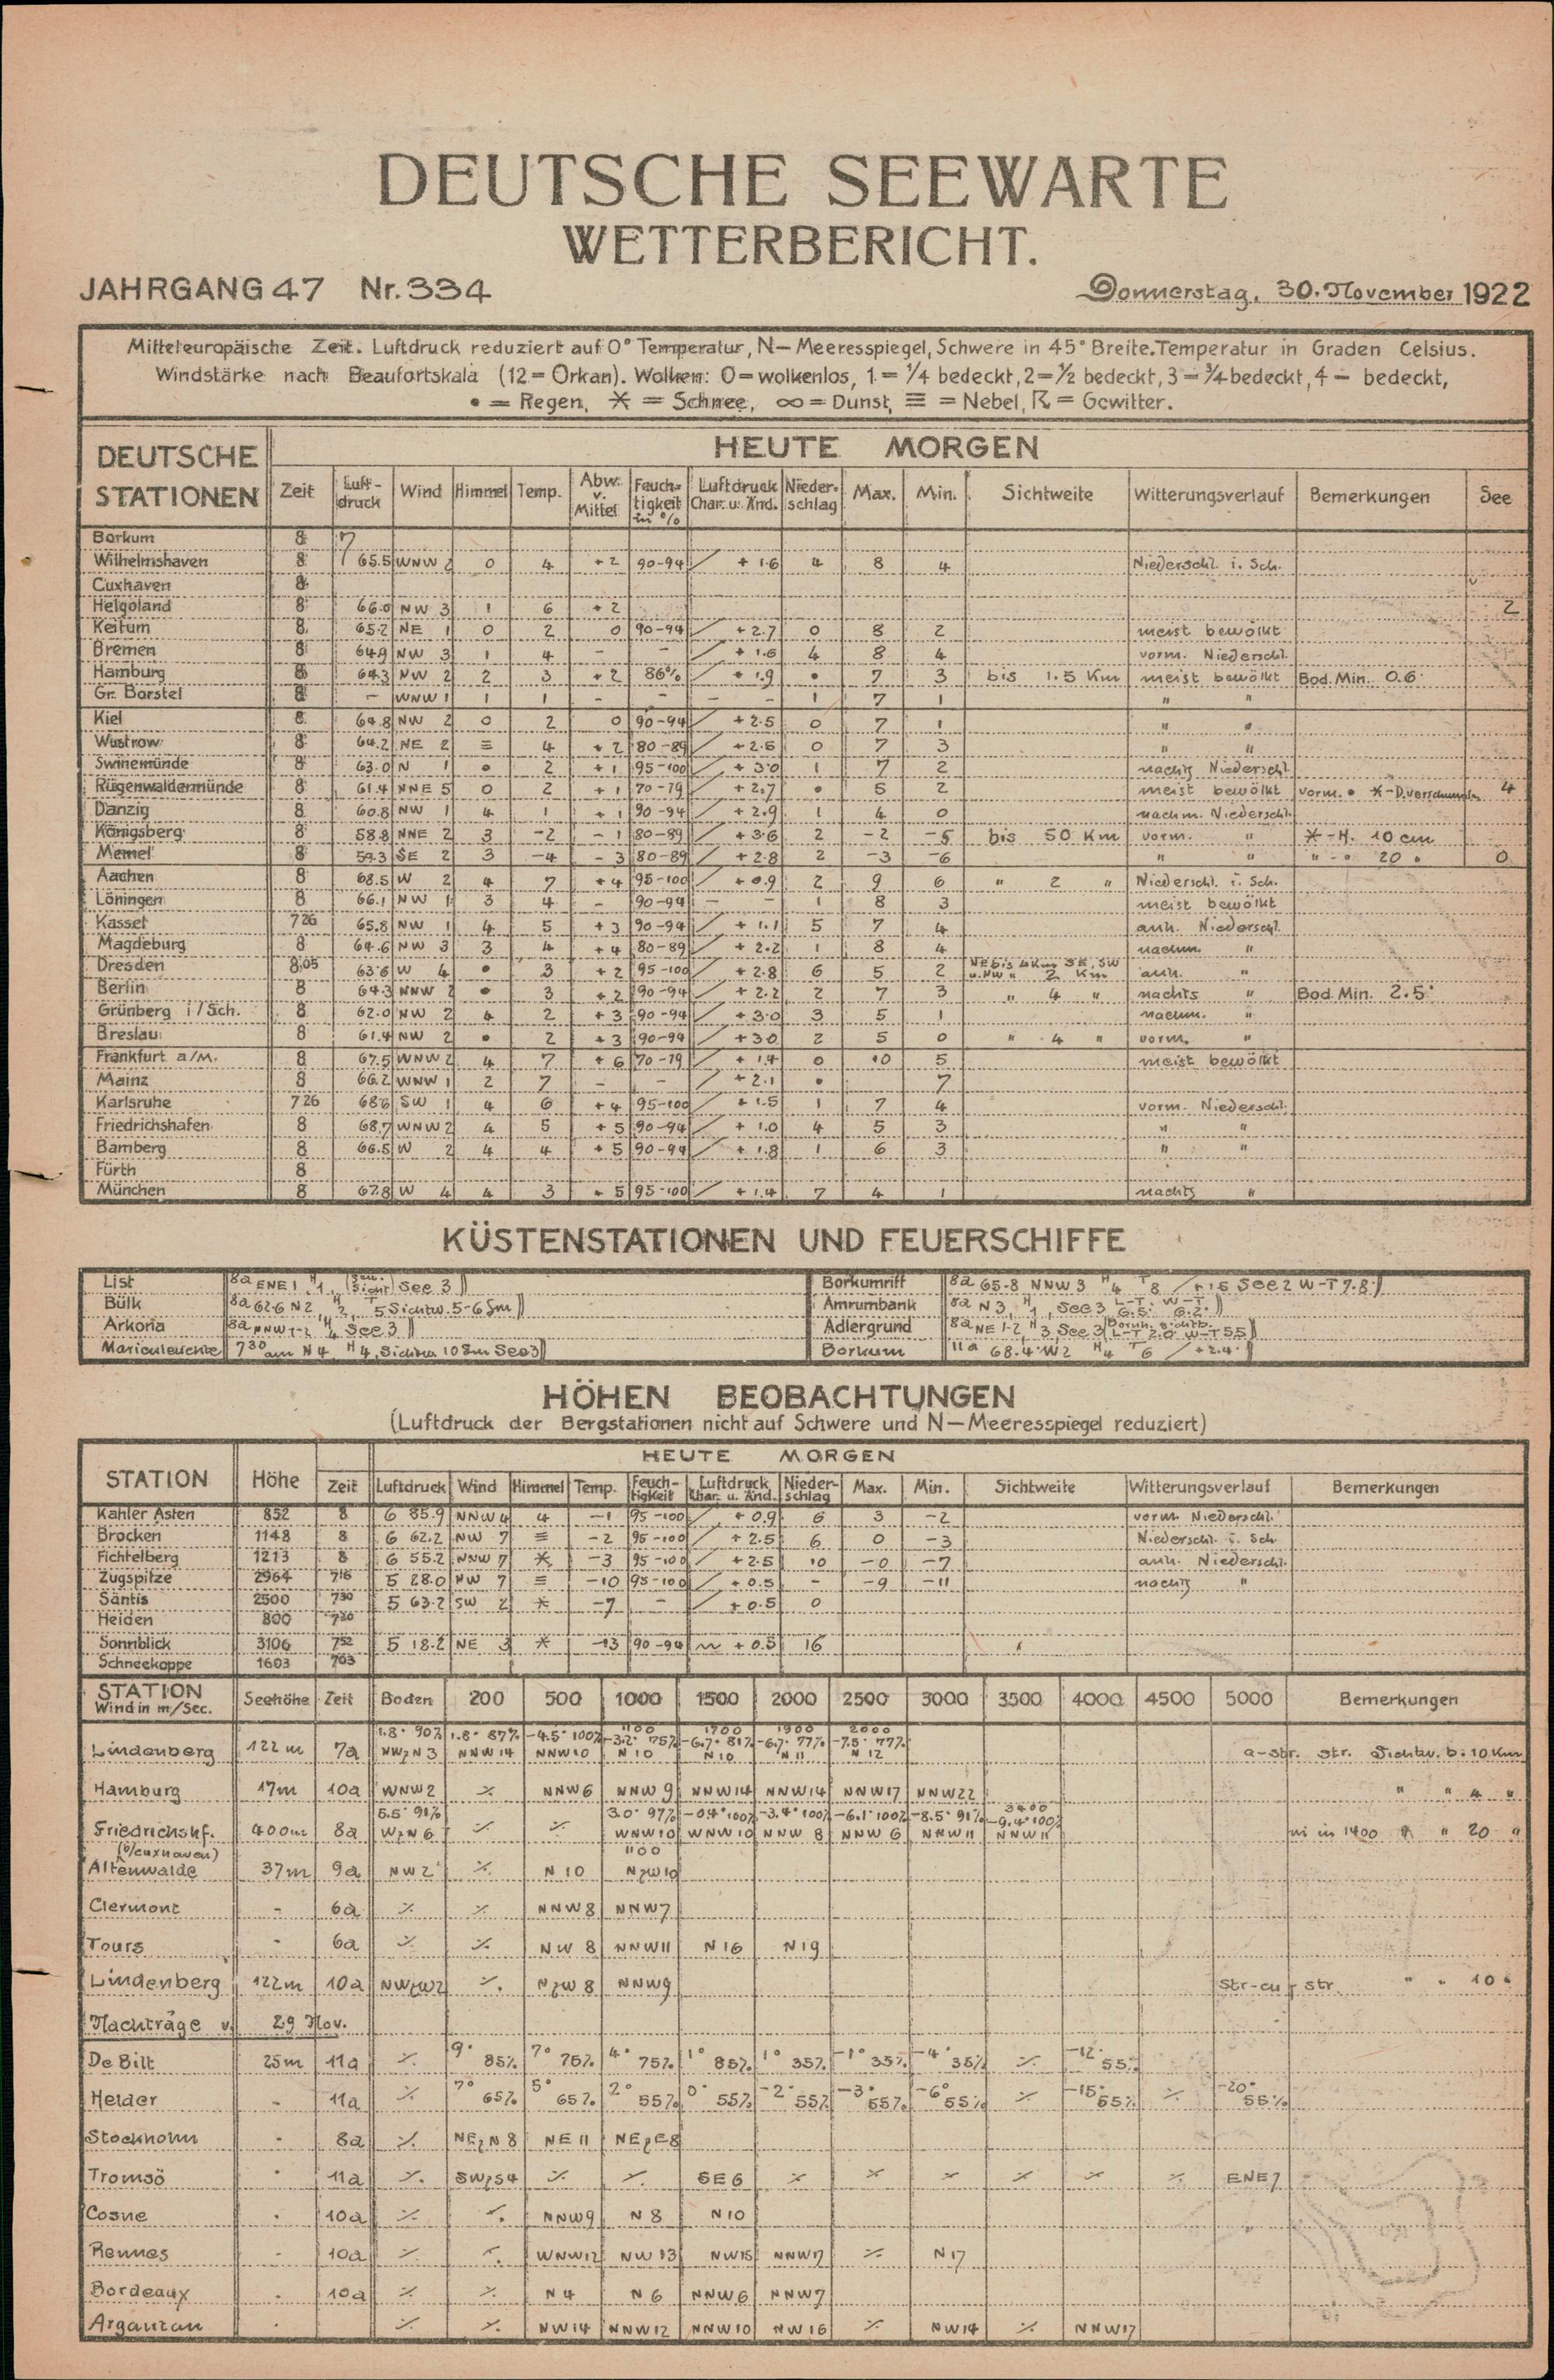 DEUTSCHE SEEWARTE
WETTERBERICHT.
JAHRGANG 47 Nr. 334 Donnerstag, 30. November 1922
Mitteleuropäische Zeit. Luftdruck reduziert auf 0° Temperatur, N—Meeresspiegel, Schwere in 45° Breite. Temperatur in Graden Celsius.
Windstärke nach Beaufortskala (12 = Orkan). Wolken: 0 = wolkenlos, 1 = 1/4 bedeckt, 2 = 1/2 bedeckt, 3 = 3/4 bedeckt, 4 = bedeckt,
• = Regen, * = Schnee, ∞ = Dunst, ≡ = Nebel, R = Gewitter.
DEUTSCHE STATIONEN HEUTE MORGEN
Zeit Luft-druck Wind Himmel Temp. Abw. v. Mittel Feuch-tigkeit in % Luftdruck Char. u. Änd. Nieder-schlag Max. Min. Sichtweite Witterungsverlauf Bemerkungen See
Borkum 8
Wilhelmshaven 8 65.5 WNW 2 0 4 +2 90-94 / +1.6 4 8 4 Niederschl. i. Sch.
Cuxhaven 8
Helgoland 8 66.0 NW 3 1 6 +2 2
Keitum 8 65.2 NE 1 0 2 0 90-94 / +2.7 0 8 2 meist bewölkt
Bremen 8 64.9 NW 3 1 4 - - / +1.6 4 8 4 vorm. Niederschl.
Hamburg 8 64.3 NW 2 2 3 +2 86% / +1.9 • 7 3 bis 1.5 Km meist bewölkt Bod. Min. 0.6
Gr. Borstel 8 - WNW 1 1 1 - - - - 1 7 1 " "
Kiel 8 64.8 NW 2 0 2 0 90-94 / +2.5 0 7 1 " "
Wustrow 8 64.2 NE 2 ≡ 4 +2 80-89 / +2.5 0 7 3 " "
Swinemünde 8 63.0 N 1 • 2 +1 95-100 / +3.0 1 7 2 nachts Niederschl.
Rügenwaldermünde 8 61.4 NNE 5 0 2 +1 70-79 / +2.7 • 5 2 meist bewölkt vorm. • 4
Danzig 8 60.8 NW 1 4 1 +1 90-94 / +2.9 1 4 0 nachm. Niederschl.
Königsberg 8 58.8 NNE 2 3 -2 -1 80-89 / +3.6 2 -2 -5 bis 50 Km vorm. " *-H. 10 cm
Memel 8 59.3 SE 2 3 -4 -3 80-89 / +2.8 2 -3 -6 " " " - " 20 " 0
Aachen 8 68.5 W 2 4 7 +4 95-100 / +0.9 2 9 6 " 2 " Niederschl. i. Sch.
Löningen 8 66.1 NW 1 3 4 - 90-94 - - 1 8 3 meist bewölkt
Kassel 7 26 65.8 NW 1 4 5 +3 90-94 / +1.1 5 7 4 anh. Niederschl.
Magdeburg 8 64.6 NW 3 3 4 +4 80-89 / +2.2 1 8 4 nachm. "
Dresden 8.05 63.6 W 4 • 3 +2 95-100 / +2.8 6 5 2 NE bis 4 Km SE, SW u. NW " 2 Km anh. "
Berlin 8 64.3 NNW 2 • 3 +2 90-94 / +2.2 2 7 3 " 4 " nachts " Bod. Min. 2.5°
Grünberg i/Sch. 8 62.0 NW 2 4 2 +3 90-94 / +3.0 3 5 1 nachm. "
Breslau 8 61.4 NW 2 • 2 +3 90-94 / +3.0 2 5 0 " 4 " vorm. "
Frankfurt a/M. 8 67.5 WNW 2 4 7 +6 70-79 / +1.4 0 10 5 meist bewölkt
Mainz 8 66.2 WNW 1 2 7 - - / +2.1 • 7
Karlsruhe 7 26 68.6 SW 1 4 6 +4 95-100 / +1.5 1 7 4 vorm. Niederschl.
Friedrichshafen 8 68.7 WNW 2 4 5 +5 90-94 / +1.0 4 5 3 " "
Bamberg 8 66.5 W 2 4 4 +5 90-94 / +1.8 1 6 3 " "
Fürth 8
München 8 67.8 W 4 4 3 +5 95-100 / +1.4 7 4 1 nachts "
KÜSTENSTATIONEN UND FEUERSCHIFFE
List 8a ENE 1 H 1 See 3 Borkumriff 8a 65.8 NNW 3 H 4 T 8 / +1.5 See 2 W-T 7.8
Bülk 8a 62.6 N 2 H 2 T 5 Sichtw. 5-6 Sm Amrumbank 8a N 3, H 1, See 3 L-T. 6.5° W-T 6.2°
Arkona 8a NNW 1-2 H 4 See 3 Adlergrund 8a NE 1-2 H 3 See 3 L-T 2.0 W-T 5.5
Marienleuchte 7 30 am N 4 H 4, See 3 Borkum 11a 68.4 W 2 H 4 T 6 / +2.4
HÖHEN BEOBACHTUNGEN
(Luftdruck der Bergstationen nicht auf Schwere und N—Meeresspiegel reduziert)
STATION Höhe HEUTE MORGEN
Zeit Luftdruck Wind Himmel Temp. Feuch-tigkeit Luftdruck Char. u. Änd. Nieder-schlag Max. Min. Sichtweite Witterungsverlauf Bemerkungen
Kahler Asten 852 8 6 85.9 NNW 4 4 -1 95-100 / +0.9 6 3 -2 vorm. Niederschl.
Brocken 1148 8 6 62.2 NW 7 ≡ -2 95-100 / +2.5 6 0 -3 Niederschl. i. Sch.
Fichtelberg 1213 8 6 55.2 NNW 7 * -3 95-100 / +2.5 10 -0 -7 anh. Niederschl.
Zugspitze 2964 7 16 5 28.0 NW 7 ≡ -10 95-100 / +0.5 - -9 -11 nachts "
Säntis 2500 7 30 5 63.2 SW 2 * -7 - / +0.5 0
Heiden 800 7 30
Sonnblick 3106 7 52 5 18.2 NE 3 * -13 90-94 +0.5 16
Schneekoppe 1603 7 03
STATION Wind in m/Sec. Seehöhe Zeit Boden 200 500 1000 1500 2000 2500 3000 3500 4000 4500 5000 Bemerkungen
1.8° 90% 1.8° 87% -4.5° 100% 1100 -3.2° 75% 1700 -6.7° 81% 1900 -6.7° 77% 2000 -7.5° 77%
Lindenberg 122 m 7a NWzN 3 NNW 14 NNW 10 N 10 N 10 N 11 N 12 a-str. str. Sichtw. b. 10 Km
Hamburg 17m 10a WNW 2 ٪ NNW 6 NNW 9 NNW 14 NNW 14 NNW 17 NNW 22 " " 4 "
5.5° 91% 3.0° 97% -0.4° 100% -3.4° 100% -6.1° 100% -8.5° 91% 3400 -9.4° 100%
Friedrichshf. 400m 8a WzN 6 ٪ ٪ WNW 10 WNW 10 NNW 8 NNW 6 NNW 11 NNW 11 ni in 1400 " 20 "
(b/Cuxhaven) 1100
Altenwalde 37m 9a NW 2 ٪ N 10 NzW 10
Clermont - 6a ٪ ٪ NNW 8 NNW 7
Tours - 6a ٪ ٪ NW 8 NNW 11 N 16 N 19
Lindenberg 122m 10a NWzW 2 ٪ NzW 8 NNW 9 str-cu, str. " " 10 "
Nachträge v. 29 Nov.
De Bilt 25m 11a ٪ 9° 85% 7° 75% 4° 75% 1° 85% 1° 35% -1° 35% -4° 35% ٪ -12° 55%
Helder - 11a ٪ 7° 65% 5° 65% 2° 55% 0° 55% -2° 55% -3° 55% -6° 55% ٪ -15° 55% ٪ -20° 55%
Stockholm - 8a ٪ NEzN 8 NE 11 NEzE 8
Tromsö - 11a ٪ SWzS 4 ٪ ٪ SE 6 ٪ ٪ ٪ ٪ ٪ ٪ ENE 7
Cosne - 10a ٪ ٪ NNW 9 N 8 N 10
Rennes - 10a ٪ ٪ WNW 12 NW 13 NW 15 NNW 17 ٪ N 17
Bordeaux - 10a ٪ ٪ N 4 N 6 NNW 6 NNW 7
Argantan - ٪ ٪ NW 14 NNW 12 NNW 10 NW 16 ٪ NW 14 ٪ NNW 17